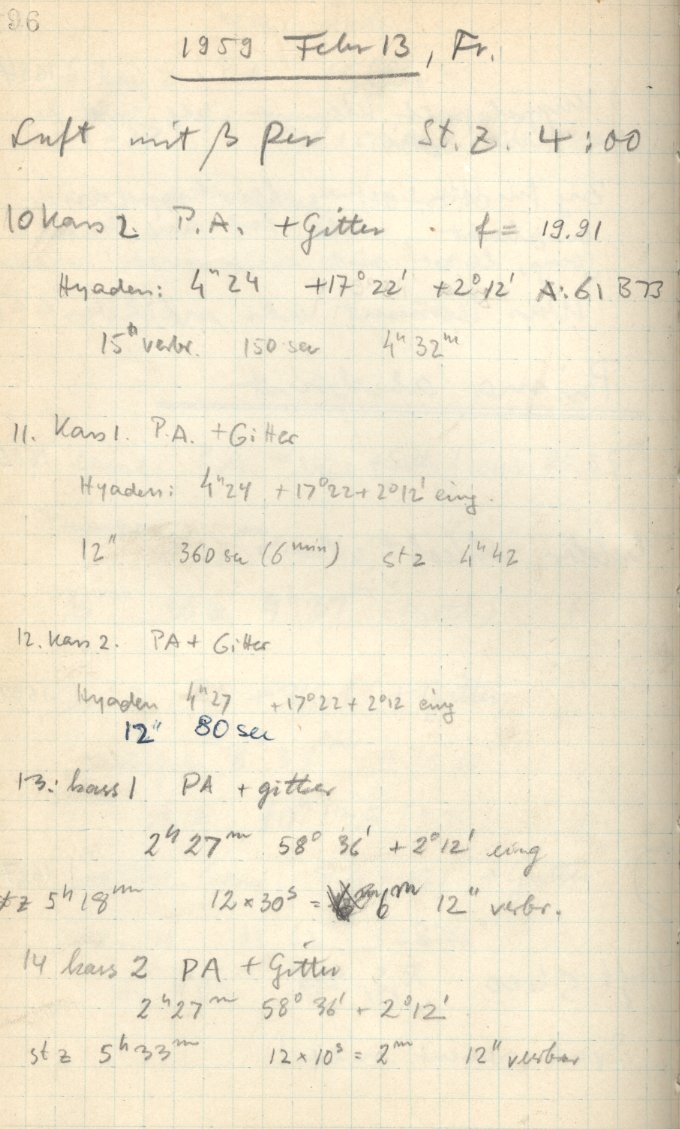 96
1959 Febr 13, Fr.
Luft mit β Per St. Z. 4:00
10 Kass 2. P.A. + Gitter . f = 19.91
Hyaden: 4h 24 +17° 22' +2° 12' A: 61 B 73
15" verbr. 150 sec 4h 32m
11. Kass 1. P.A. + Gitter
Hyaden: 4h 24 +17° 22 + 2° 12' eing.
12" 360 sec (6 min) st z 4h 42
12. Kass 2. PA + Gitter
Hyaden 4h 27 +17° 22 + 2° 12 eing
12" 80 sec
13: kass 1 PA + gitter
2h 27m 58° 36' + 2° 12' eing
st z 5h 18m 12 × 30s = 6m 12" verbr.
14 kass 2 PA + Gitter
2h 27m 58° 36' + 2° 12'
st z 5h 33m 12 × 10s = 2m 12" verbr